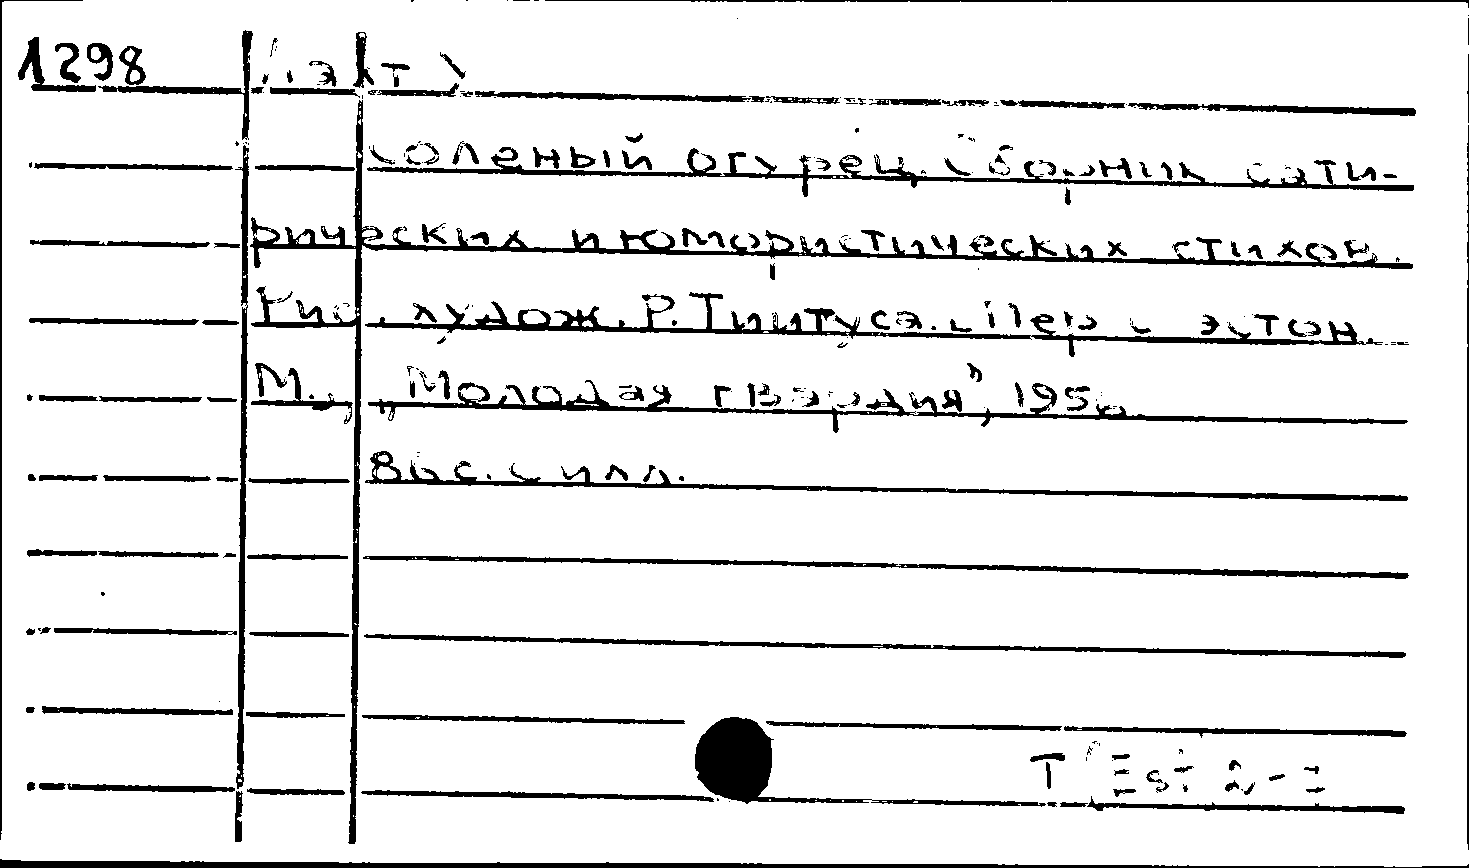 1298
Соленый огурец. Сборник сати-
рических и юмористических стихов.
Рис. худож. Р. Тийтуса. Пер с эстон.
М., „Молодая гвардия”, 1956.
86 с. с илл.
T Est 2-I